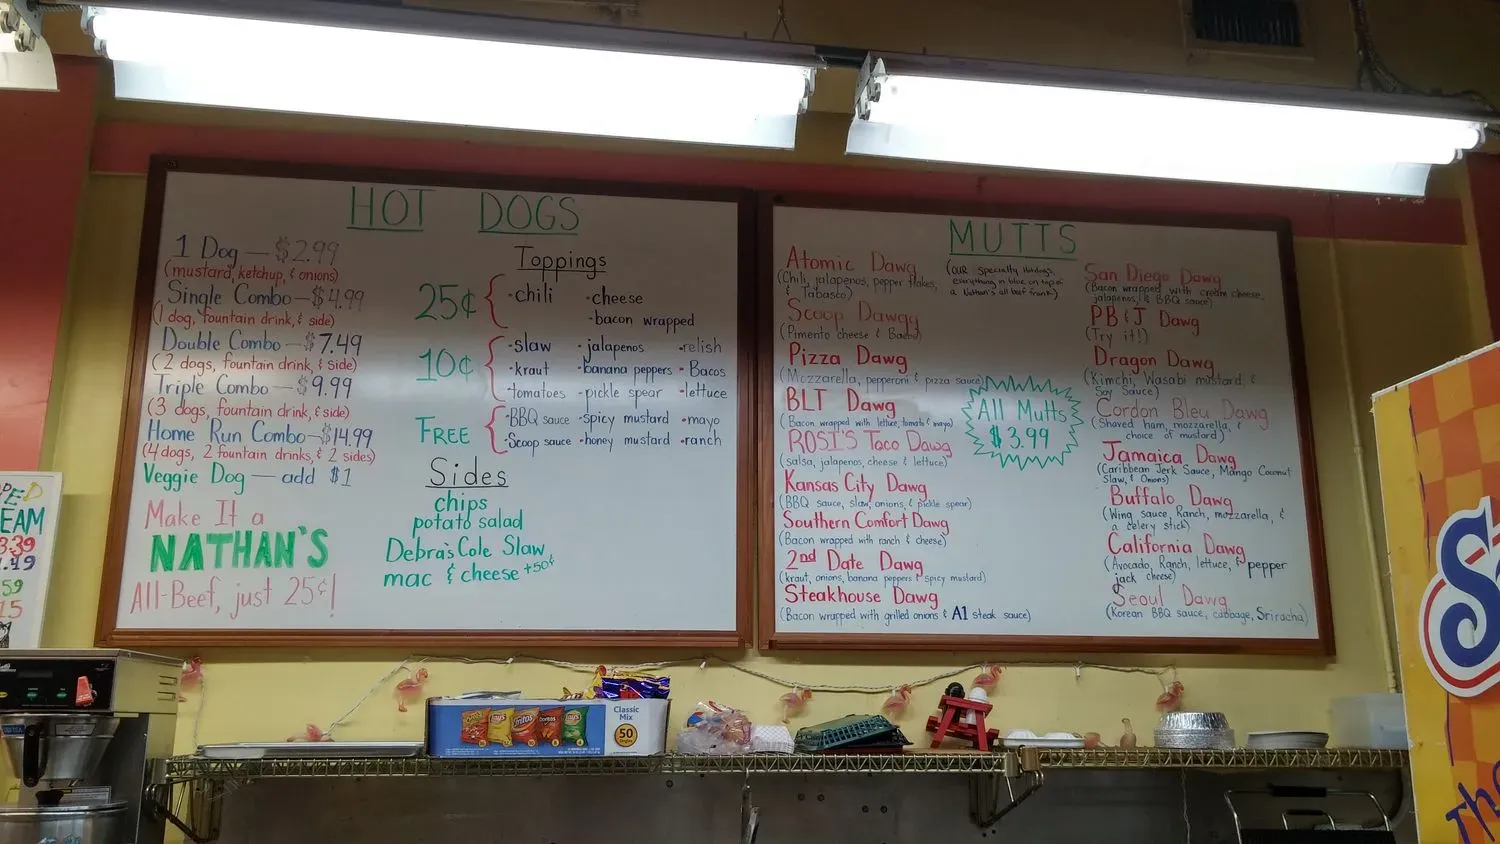 HOT DOGS
1 Dog — $2.99
(mustard, ketchup, & onions)
Single Combo — $4.99
(1 dog, fountain drink, & side)
Double Combo — $7.49
(2 dogs, fountain drink, & side)
Triple Combo — $9.99
(3 dogs, fountain drink, & side)
Home Run Combo — $14.99
(4 dogs, 2 fountain drinks, & 2 sides)
Veggie Dog — add $1
Make It a
NATHAN'S
All-Beef, just 25¢!
Toppings
25¢
-chili
-cheese
-bacon wrapped
10¢
-slaw -jalapenos -relish
-kraut -banana peppers -Bacos
-tomatoes -pickle spear -lettuce
FREE
-BBQ sauce -spicy mustard -mayo
-Scoop sauce -honey mustard -ranch
Sides
chips
potato salad
Debra's Cole Slaw
mac & cheese +50¢
MUTTS
(our specialty hotdogs,
everything in blue on top of
a Nathan's all beef frank)
Atomic Dawg
(Chili, jalapenos, pepper flakes,
& Tabasco)
Scoop Dawgg
(Pimento cheese & Bacon)
Pizza Dawg
(Mozzarella, pepperoni & pizza sauce)
BLT Dawg
(Bacon wrapped with lettuce, tomato & mayo)
ROSI'S Taco Dawg
(salsa, jalapenos, cheese & lettuce)
Kansas City Dawg
(BBQ sauce, slaw, onions, & pickle spear)
Southern Comfort Dawg
(Bacon wrapped with ranch & cheese)
2nd Date Dawg
(kraut, onions, banana peppers & spicy mustard)
Steakhouse Dawg
(Bacon wrapped with grilled onions & A1 steak sauce)
All Mutts
$3.99
San Diego Dawg
(Bacon wrapped with cream cheese,
jalapenos, & BBQ sauce)
PB & J Dawg
(Try it!)
Dragon Dawg
(Kimchi, Wasabi mustard, &
Soy Sauce)
Cordon Bleu Dawg
(Shaved ham, mozzarella, &
choice of mustard)
Jamaica Dawg
(Caribbean Jerk Sauce, Mango Coconut
Slaw, & Onions)
Buffalo Dawg
(Wing sauce, Ranch, mozzarella, &
a celery stick)
California Dawg
(Avocado, Ranch, lettuce, & pepper
jack cheese)
Seoul Dawg
(Korean BBQ sauce, cabbage, Sriracha)
Classic
Mix
50
Lay's
Fritos
Doritos
Lay's